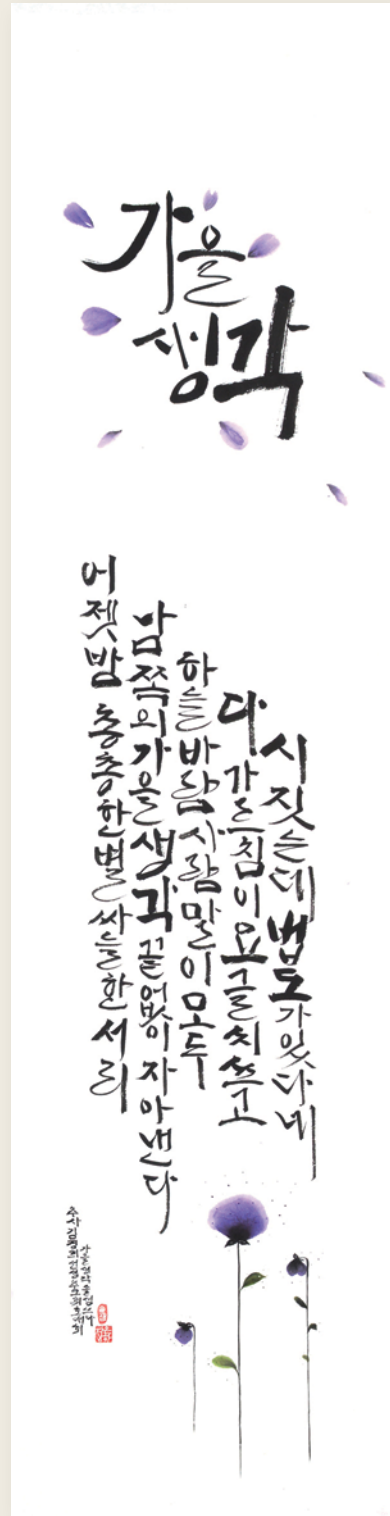 가을
생각
어젯밤 총총한 별 싸늘한 서리
남쪽의 가을 생각 끝없이 자아낸다
하늘 바람 사람 말이 모두
다 가르침이요 글씨 쓰고
시 짓는데 법도가 있다네
추사 김정희 선생
가을 생각